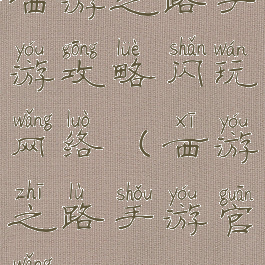 西游之路手
yóu gōng luè shǎn wán
游攻略闪玩
wǎng luò xī yóu
网络（西游
zhī lù shǒu yóu guān
之路手游官
wǎng